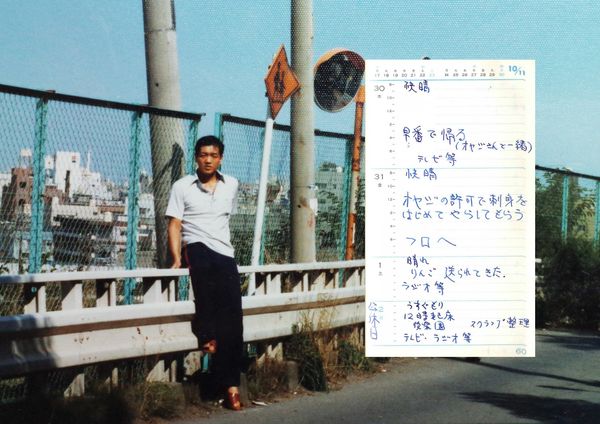 10/11
30 快晴
早番で帰る
(オヤジさんと一緒)
テレビ等
31 快晴
オヤジの許可で刺身を
はじめてやらしてもらう
フロへ
1 晴れ
りんご 送られてきた.
ラジオ等
公休日
うすぐもり
12時起床
後楽園 スクラップ整理
テレビ・ラジオ等
60